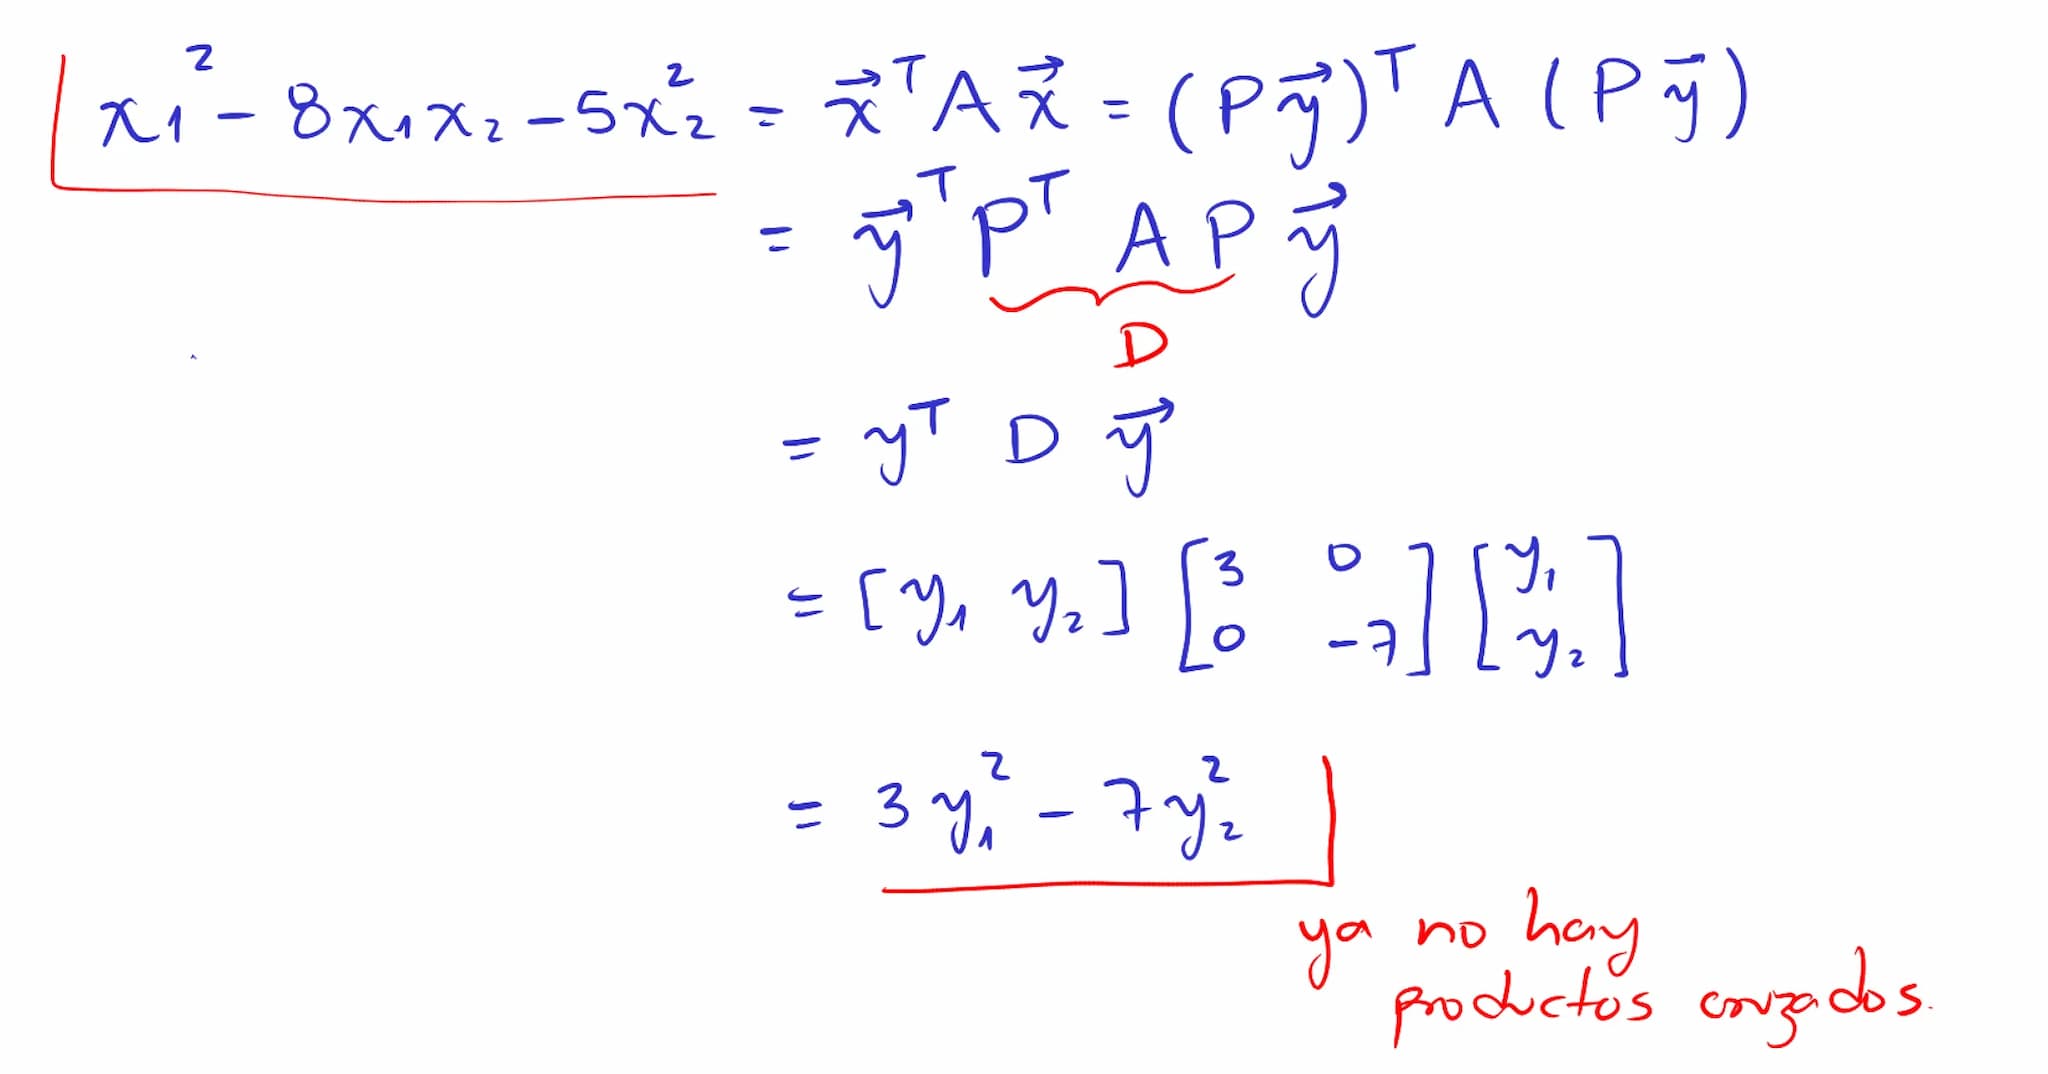 x₁² - 8x₁x₂ - 5x₂² = x⃗ᵀ A x⃗ = (P y⃗)ᵀ A (P y⃗)
= y⃗ᵀ Pᵀ A P y⃗
D
= yᵀ D y⃗
= [y₁ y₂] [3 0; 0 -7] [y₁; y₂]
= 3y₁² - 7y₂²
ya no hay
productos cruzados.